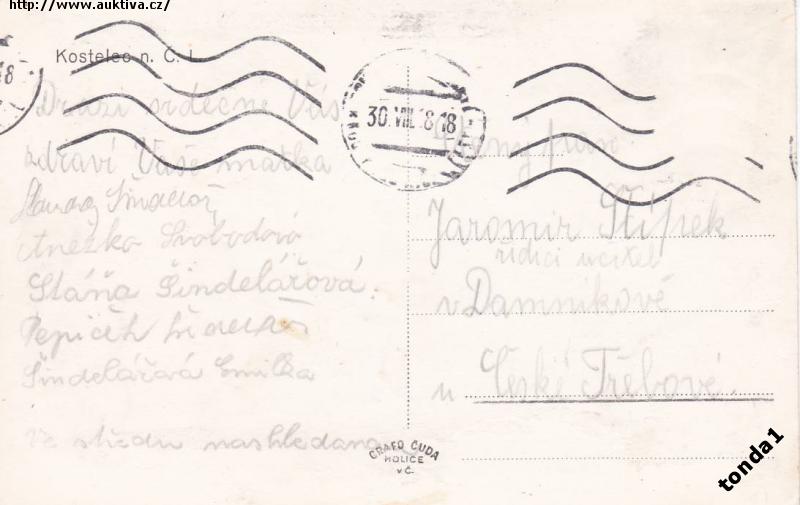 http://www.auktiva.cz/
Kostelec n. Č. l.
Drazí srdečně Vás
zdraví Vaše matka
Anežka Svobodová
Stáňa Šindelářová.
Pepíček
Šindelářová Emilka
Ve středu nashledanou
30.VIII. 18
18
Jaromír Štípek
řídící učitel
v Damníkově
u České Třebové.
GRAFO ČUDA
HOLICE
v Č.
tonda1